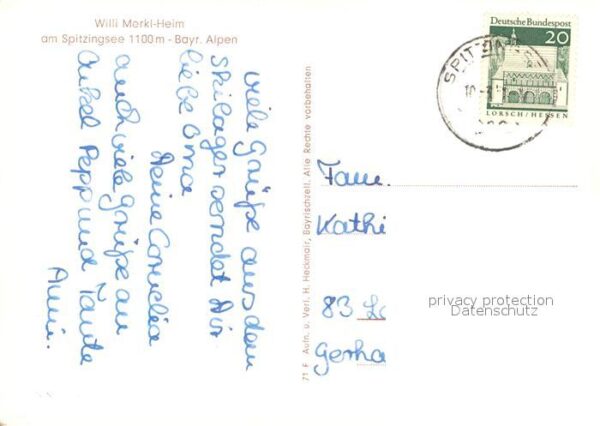 Willi Merkl-Heim
am Spitzingsee 1100m - Bayr. Alpen
Viele Grüße aus dem
Skilager sendet Dir
liebe Oma
Deine Cornelia
Auch viele Grüße an
Onkel Pepp und Tante
Anni.
71 F Aufn. u. Verl. H. Heckmair, Bayrischzell, Alle Rechte vorbehalten
Deutsche Bundespost
20
LORSCH/HESSEN
SPITZING
Fam.
Kathi
83 La
Gerha
privacy protection
Datenschutz